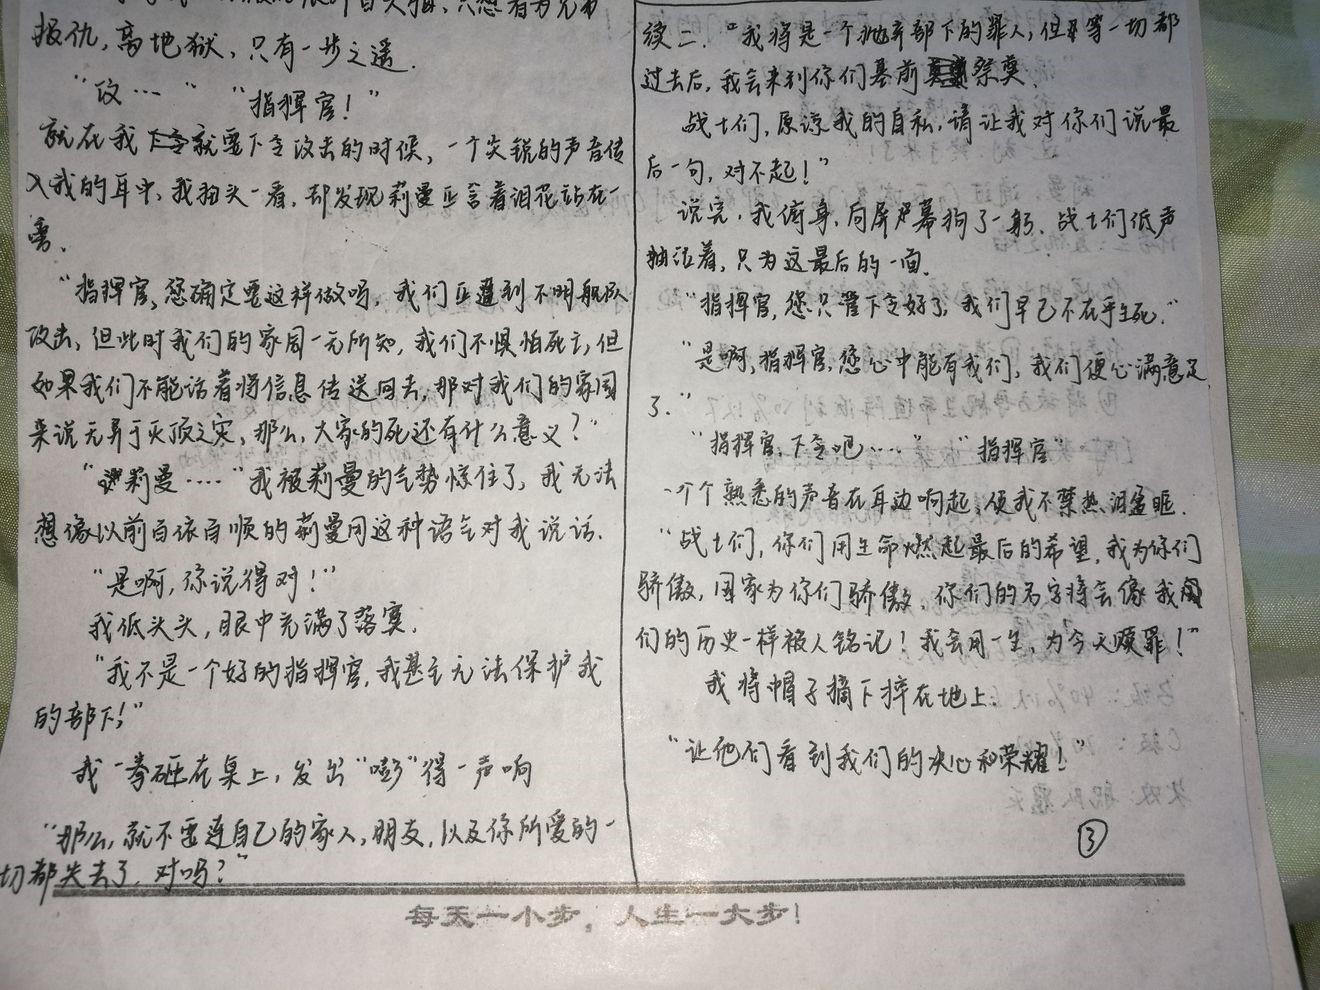 报仇，离地狱，只有一步之遥.
“攻…” “指挥官！”
就在我就要下令攻击的时候，一个尖锐的声音传
入我的耳中，我扭头一看，却发现莉曼正含着泪花站在一
旁.
“指挥官，您确定要这样做吗，我们正遭到不明舰队
攻击，但此时我们的家园一无所知，我们不惧怕死亡，但
如果我们不能活着将信息传送回去，那对我们的家园
来说无异于灭顶之灾，那么，大家的死还有什么意义？”
“莉曼….”我被莉曼的气势惊住了，我无法
想像以前百依百顺的莉曼用这种语气对我说话.
“是啊，你说得对！”
我低头头，眼中充满了落寞.
“我不是一个好的指挥官，我甚至无法保护我
的部下！”
我一拳砸在桌上，发出“嘭”得一声响
“那么，就不要连自己的家人，朋友，以及你所爱的一
切都失去了，对吗？”
续二.“我将是一个抛弃部下的罪人，但等一切都
过去后，我会来到你们墓前祭奠.
战士们，原谅我的自私，请让我对你们说最
后一句，对不起！”
说完，我俯身，向屏幕鞠了一躬. 战士们低声
抽泣着，只为这最后的一面.
“指挥官，您只管下令好了，我们早已不在乎生死.”
“是啊，指挥官，您心中能有我们，我们便心满意足
了.”
“指挥官，下令吧….” “指挥官”
一个个熟悉的声音在耳边响起，使我不禁热泪盈眶.
“战士们，你们用生命燃起最后的希望，我为你们
骄傲，国家为你们骄傲，你们的名字将会像我
们的历史一样被人铭记！我会用一生，为今天赎罪！”
我将帽子摘下摔在地上.
“让他们看到我们的决心和荣耀！”
③
每天一小步，人生一大步！